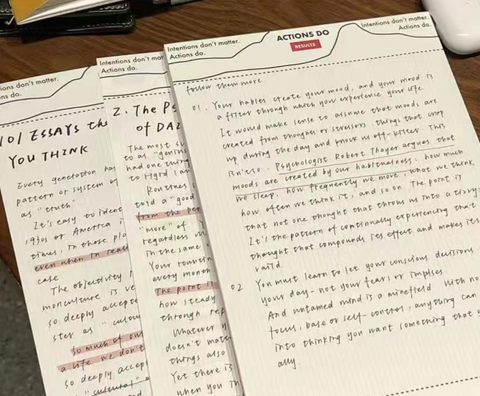 Intentions don't matter.
Actions do.
101 ESSAYS tha
YOU THINK
Every generation ha
pattern or system of
as "truth"
It's easy to ident
1930s or America
times, in those pla
even when in reali
case
The objectivity
monoculture is ve
so deeply accepte
ster as
so much of ou
a life we don't
so deeply accep
Intentions don't matter.
Actions do.
2. The Ps
of DAI
The most s
to as "geniu
had one thing
to
Routines
told a "good
from the per
"more" of
regardless
in the same
Your routine
every mome
The point i
how steady
through rep
Whatever
doesn't matt
things also
Yet there is
when you in
Intentions don't matter.
Actions do.
ACTIONS DO
RESULTS
Intentions don't matter.
Actions do.
follow them more.
01. Your habits create your mood, and your mood is
a filter through which you experience your life.
It would make sense to assume that moods are
created from thoughts or stressors, things that crop
up during the day and knock us off-kilter. This
isn't so. Psychologist Robert Thayer argues that
moods are created by our habitualness: how much
we sleep, how frequently we move, what we think,
how often we think it, and so on. The point is
that not one thought that throws us into a tizzy:
It's the pattern of continually experiencing that
thought that compounds its effect and makes it s
valid.
02 You must learn to let your conscious decisions
your day - not your fear or impulses
And untamed mind is a minefield. With no
focus, base or self-control, anything can
into thinking you want something that y
ally.